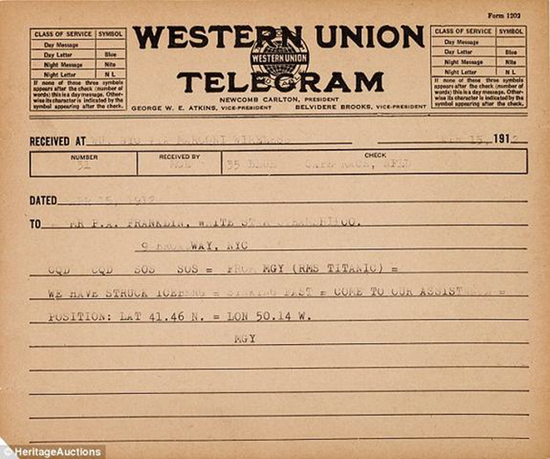 Form 1202
CLASS OF SERVICE SYMBOL
Day Message
Day Letter Blue
Night Message Nite
Night Letter N L
If none of these three symbols
appears after the check (number of
words) this is a day message. Other-
wise its character is indicated by the
symbol appearing after the check.
WESTERN UNION
WESTERN UNION
TELEGRAM
NEWCOMB CARLTON, PRESIDENT
GEORGE W. E. ATKINS, VICE-PRESIDENT BELVIDERE BROOKS, VICE-PRESIDENT
CLASS OF SERVICE SYMBOL
Day Message
Day Letter Blue
Night Message Nite
Night Letter N L
If none of these three symbols
appears after the check (number of
words) this is a day message. Other-
wise its character is indicated by the
symbol appearing after the check.
RECEIVED AT WIRELESS 15, 1912
NUMBER RECEIVED BY CHECK
31 35 CAPE RACE, NFLD
DATED 15, 1912
TO MR P.A. FRANKLIN, WHITE STAR STEAMSHIP CO.
9 BROADWAY, NYC
CQD CQD SOS SOS = FROM MGY (RMS TITANIC) =
WE HAVE STRUCK ICEBERG = SINKING FAST = COME TO OUR ASSISTANCE =
POSITION: LAT 41.46 N. = LON 50.14 W.
MGY
© HeritageAuctions